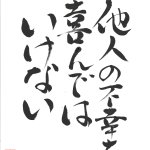 他人の不幸
喜んでは
いけない